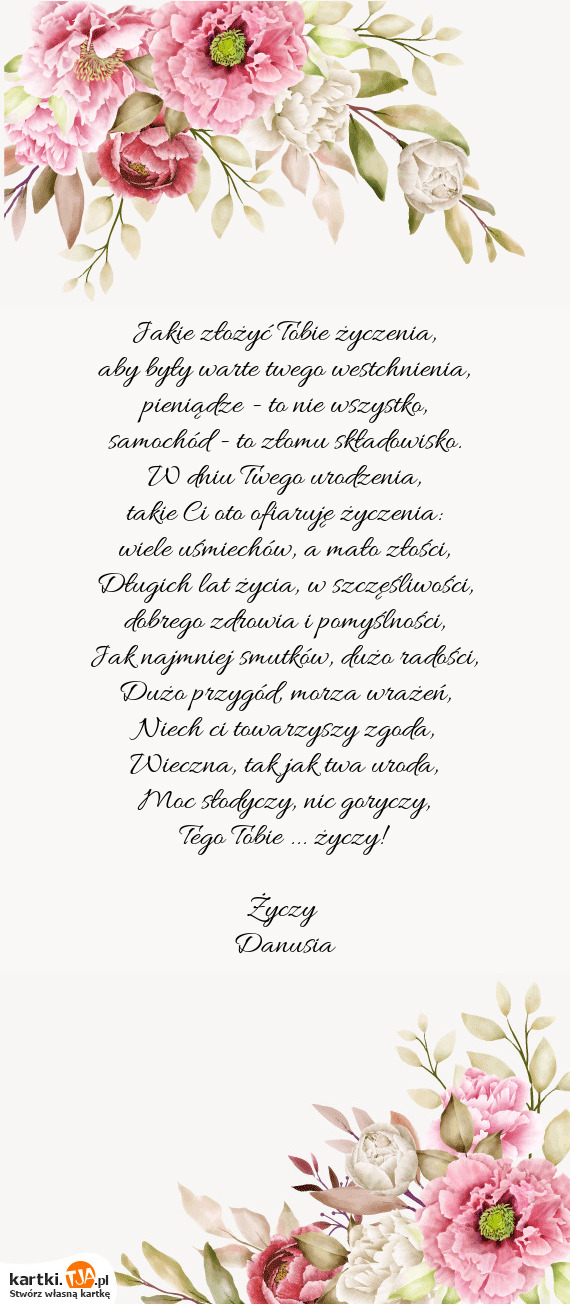 Jakie złożyć Tobie życzenia,
aby były warte twego westchnienia,
pieniądze - to nie wszystko,
samochód - to złomu składowisko.
W dniu Twego urodzenia,
takie Ci oto ofiaruję życzenia:
wiele uśmiechów, a mało złości,
Długich lat życia, w szczęśliwości,
dobrego zdrowia i pomyślności,
Jak najmniej smutków, dużo radości,
Dużo przygód, morza wrażeń,
Niech ci towarzyszy zgoda,
Wieczna, tak jak twa uroda,
Moc słodyczy, nic goryczy,
Tego Tobie ... życzy!
Życzy
Danusia
kartki.TJA.pl
Stwórz własną kartkę